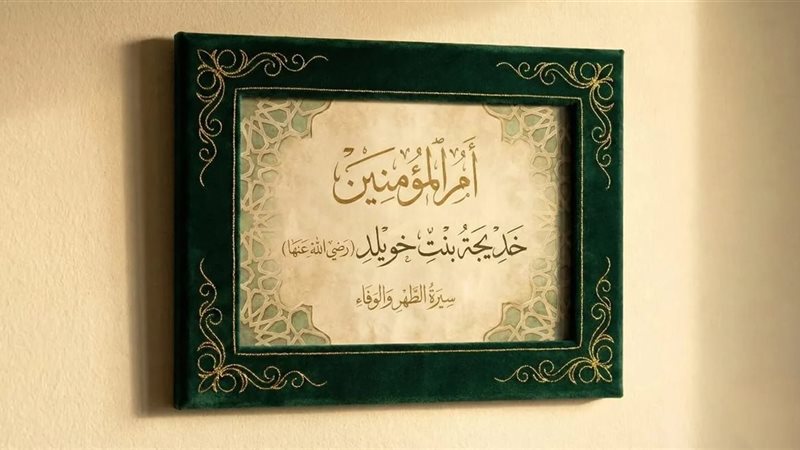 أُمُّ ٱلْمُؤْمِنِينَ
خَدِيجَةُ بِنْتِ خويلدِ (رَضِيَ اللهُ عَنهَا)
سِيرَةُ الطُّهْرِ وَالوَفَاءِ